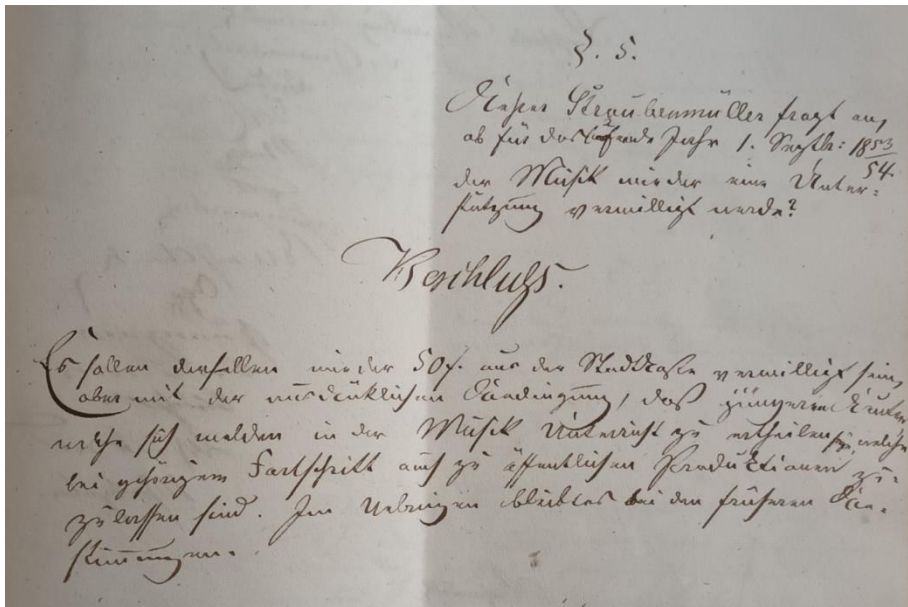 §. 5.
Lehrer Straubenmüller fragt an,
ob für das laufende Jahr 1. Septb: 1853/54.
der Musik wieder eine Unter=
stützung verwilligt werde?
Beschluß.
Es sollen derselben wieder 50 f. aus der Stadtkasse verwilligt sein,
aber mit der ausdrücklichen Bedingung, daß jüngeren Leuten
welche sich melden in der Musik Unterricht zu ertheilen sei, welche
bei gehörigem Fortschritt auch zu öffentlichen Produktionen zu=
zulassen sind. Im Uebrigen bleibt es bei den früheren Be=
stimmungen.